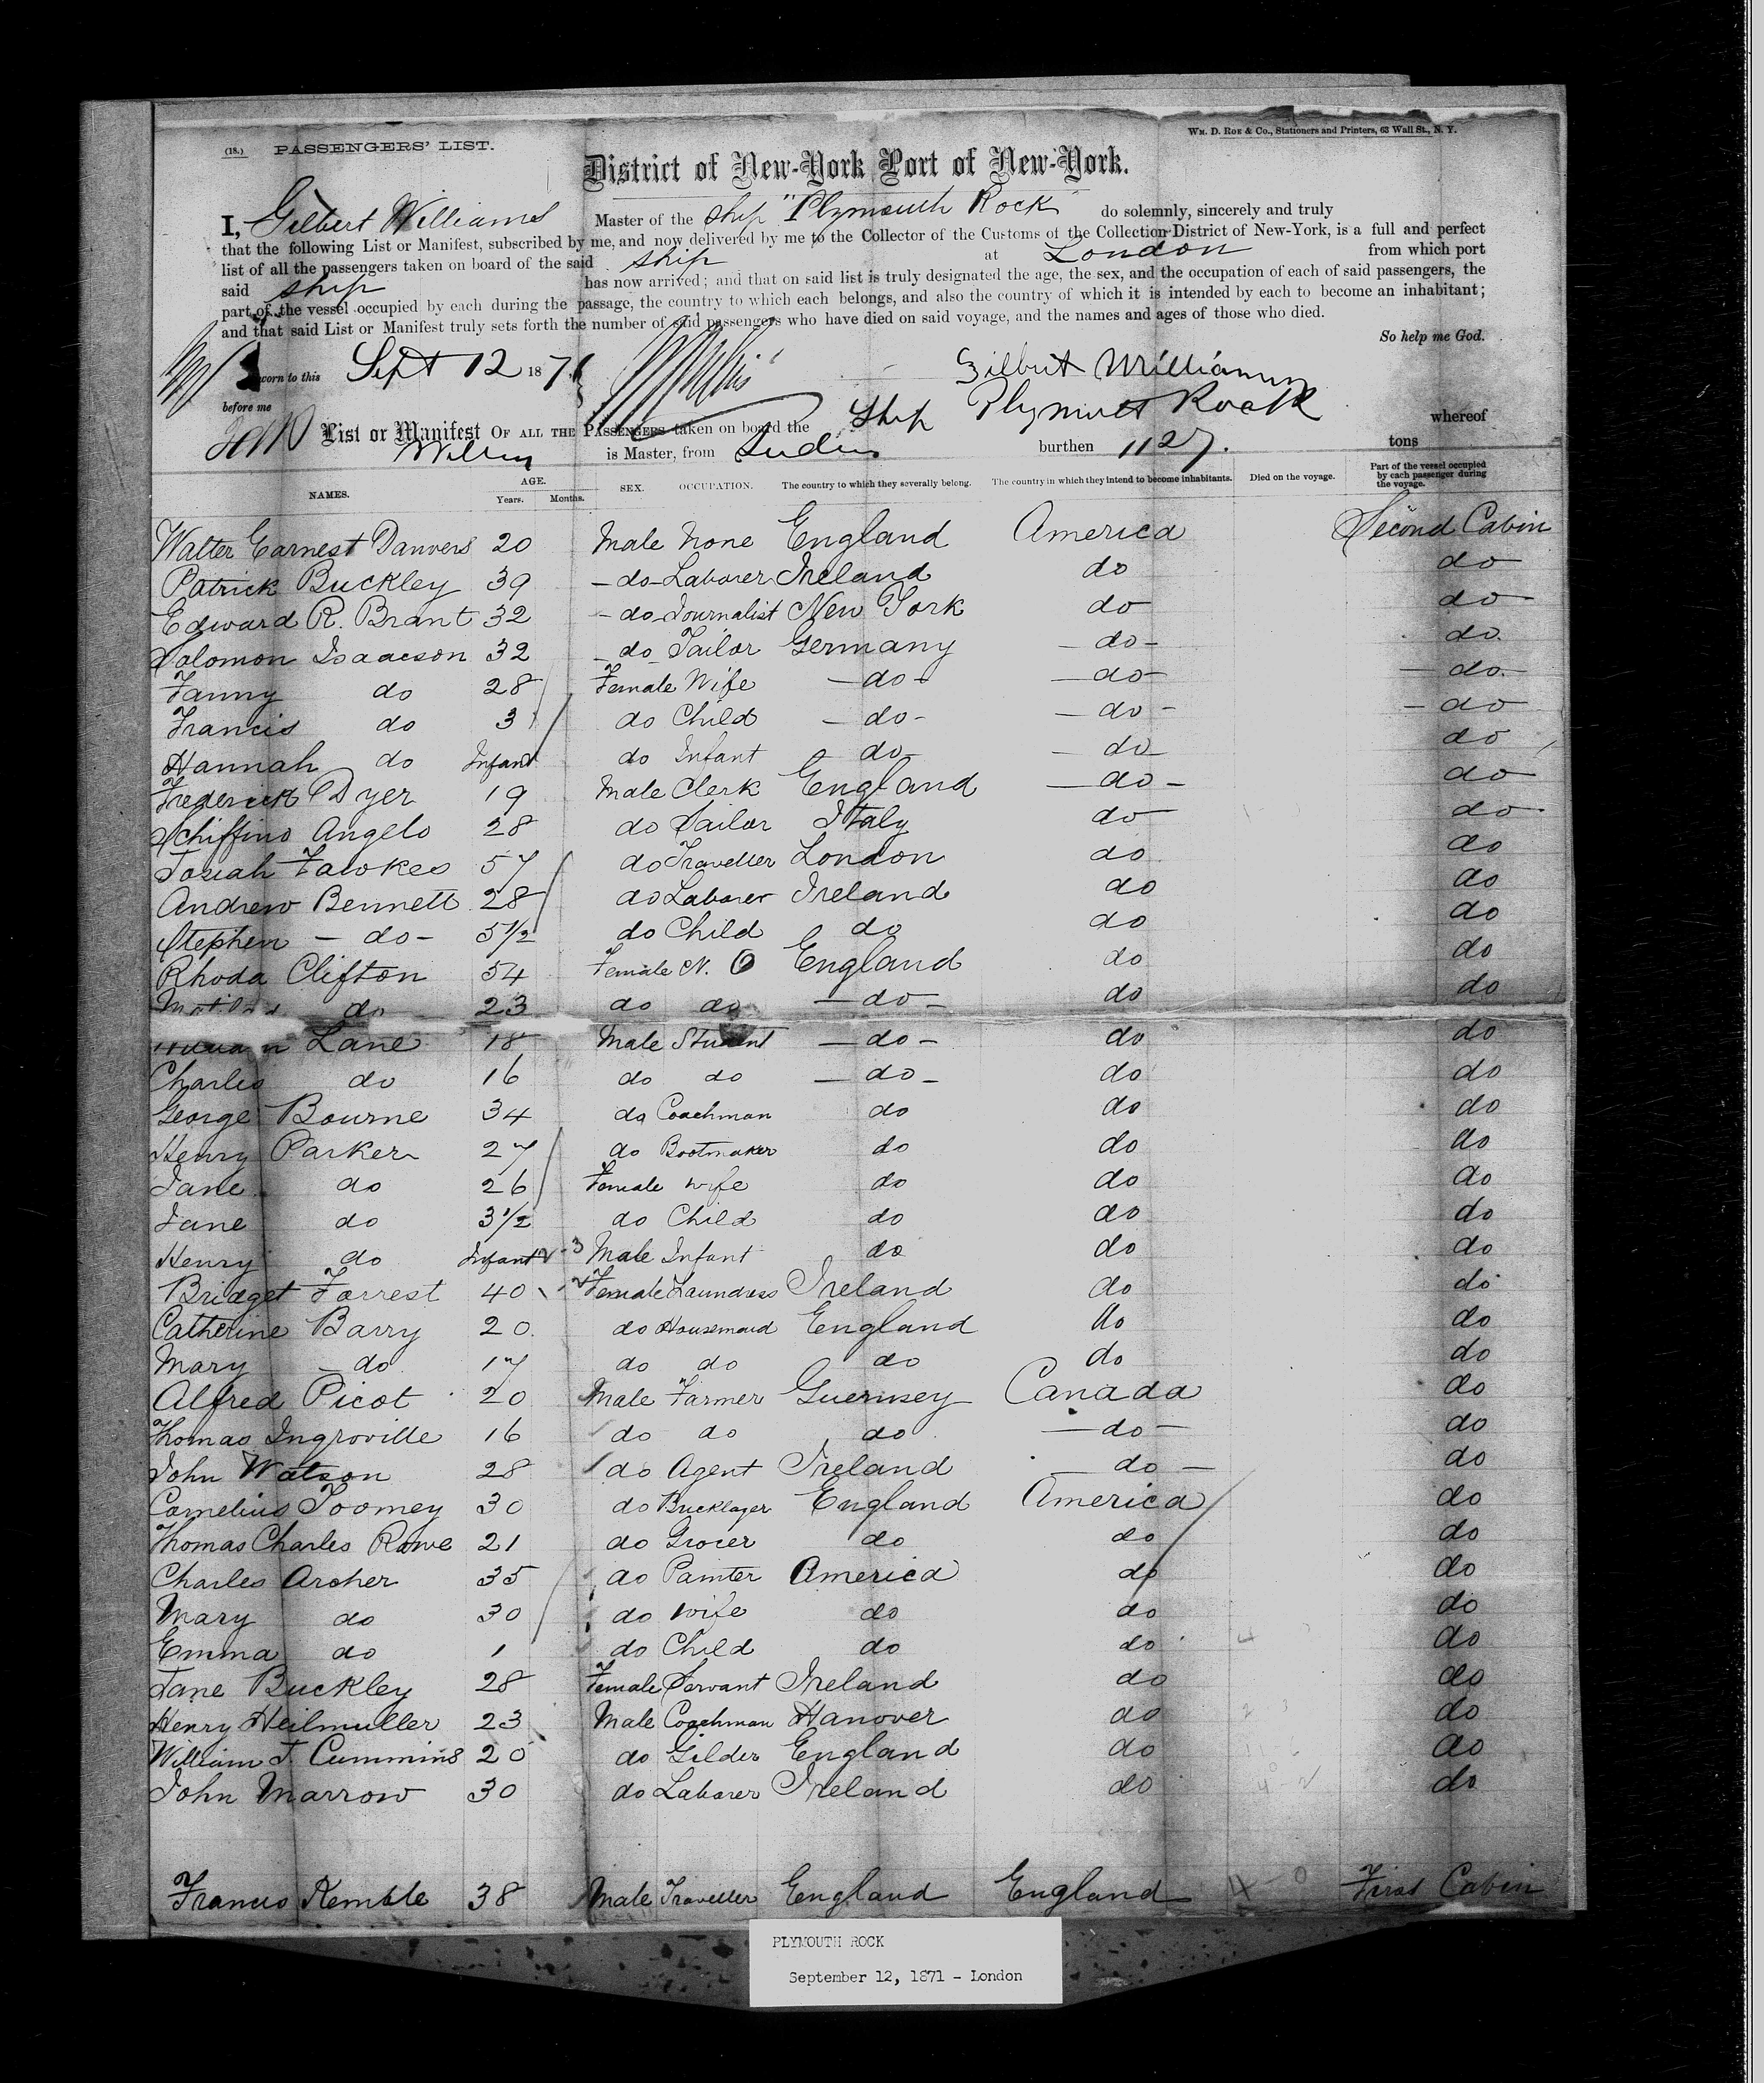 WM. D. ROE & CO., Stationers and Printers, 63 Wall St., N. Y.
(18.) PASSENGERS' LIST.
District of New-York Port of New-York.
I, Gilbert Williams Master of the ship "Plymouth Rock do solemnly, sincerely and truly
that the following List or Manifest, subscribed by me, and now delivered by me to the Collector of the Customs of the Collection District of New-York, is a full and perfect
list of all the passengers taken on board of the said ship at London from which port
said ship has now arrived; and that on said list is truly designated the age, the sex, and the occupation of each of said passengers, the
part of the vessel occupied by each during the passage, the country to which each belongs, and also the country of which it is intended by each to become an inhabitant;
and that said List or Manifest truly sets forth the number of said passengers who have died on said voyage, and the names and ages of those who died.
So help me God.
Sworn to this Sept 12 1871 Gilbert Williams
before me
List or Manifest OF ALL THE PASSENGERS taken on board the Ship Plymouth Rock whereof
is Master, from burthen 1127. tons
NAMES. AGE. Years. Months. SEX. OCCUPATION. The country to which they severally belong. The country in which they intend to become inhabitants. Died on the voyage. Part of the vessel occupied by each passenger during the voyage.
Walter Earnest Danvers 20 Male None England America Second Cabin
Patrick Buckley 39 -do- Laborer Ireland do do
Edward R. Brant 32 -do- Journalist New York do do
Solomon Isaacson 32 do Tailor Germany -do- do
Fanny do 28 Female Wife -do- -do- -do-
Francis do 3 do Child -do- -do- -do
Hannah do Infant do Infant do- -do- do
Frederick Dyer 19 Male Clerk England -do- do
Schiffino Angelo 28 do Sailor Italy do do
Josiah Fawkes 57 do Traveller London do do
Andrew Bennett 28 do Laborer Ireland do do
Stephen -do- 5 1/2 do Child do do do
Rhoda Clifton 54 Female N. O England do do
do 23 do do -do- do do
Lane 18 Male Student -do- do do
Charles do 16 do do -do- do do
George Bourne 34 do Coachman do do do
Henry Parker 27 do Bootmaker do do do
Jane do 26 Female wife do do do
Jane do 3 1/2 do Child do do do
Henry do Infant Male Infant do do do
Bridget Forrest 40 Female Laundress Ireland do do
Catherine Barry 20. do Housemaid England do do
Mary do 17 do do do do do
Alfred Picot 20 Male Farmer Guernsey Canada do
Thomas Ingroville 16 do do do -do- do
John Watson 28 do Agent Ireland do - do
Cornelius Toomey 30 do Bricklayer England America do
Thomas Charles Rowe 21 do Grocer do do do
Charles Archer 35 do Painter America do do
Mary do 30 do wife do do do
Emma do 1 do Child do do do
Jane Buckley 28 Female Servant Ireland do do
Henry Heilmuller 23 Male Coachman Hanover do do
William J. Cummins 20 do Gilder England do do
John Marrow 30 do Laborer Ireland do do
Francis Kemble 38 Male Traveller England England First Cabin
PLYMOUTH ROCK
September 12, 1871 - London